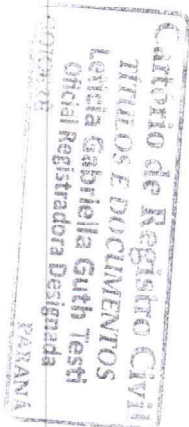 Cartorio de Registro Civil
TITULOS E DOCUMENTOS
Leticia Gabriella Guth Testi
Oficial Registradora Designada
PARANÁ